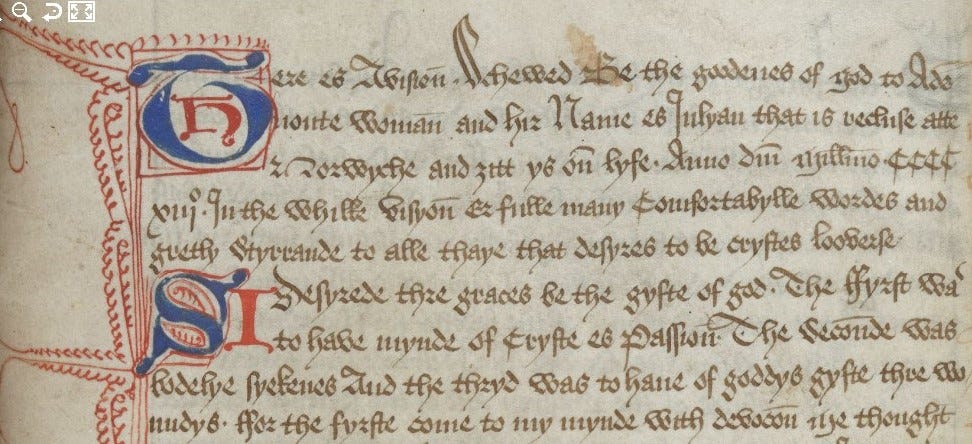 Here es Avisioñ Schewed Be the goodenes of god to Ade
uoute Womañ and hir Name es Julyañ that is recluse atte
Norwyche and ȝitt ys oñ lyfe. Anno dñi millmo CCCC
xiijo. In the Whilke Visyoñ Er fulle many Comfortabylle Wordes and
gretly Styrrande to alle thaye that desyres to be crystes looverse
I Desyrede thre graces be the gyfte of god. The ffyrst was
to have mynde of Cryste es Passioñ. The Secoñde was
bodelye syekenes And the thryd was to haue of goddys gyfte thre wo
undys. ffor the fyrste come to my mynde with devocoñ me thought